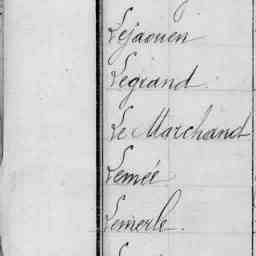 LeJaouen
Legrand.
Le Marchand
Lemée
Lemerle.